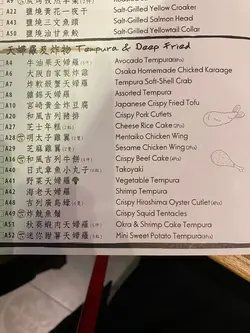 A22 鹽燒黃花一夜干 Salt-Grilled Yellow Croaker
A32 鹽燒三文魚頭 Salt-Grilled Salmon Head
A50 鹽燒油甘魚鮫 Salt-Grilled Yellowtail Collar
天婦羅及炸物 Tempura & Deep Fried
A4 牛油果天婦羅 Avocado Tempura
A6 大阪自家製炸雞 Osaka Homemade Chicken Karaage
A7 炸軟殼蟹天婦羅 Tempura Soft-Shell Crab
A8 雜錦天婦羅 Assorted Tempura
A10 宮崎黃金炸豆腐 Japanese Crispy Fried Tofu
A20 和風吉列豬排 Crispy Pork Cutlets
A27 芝士年糕 Cheese Rice Cake
A28 明太子雞翼 Mentaiko Chicken Wing
A29 芝麻雞翼 Sesame Chicken Wing
A36 和風吉列牛餅 Crispy Beef Cake
A40 日式章魚小丸子 Takoyaki
A41 野菜天婦羅 Vegetable Tempura
A42 海老天婦羅 Shrimp Tempura
A48 吉列廣島蠔 Crispy Hiroshima Oyster Cutlet
A49 炸魷魚鬚 Crispy Squid Tentacles
A51 秋葵蝦肉天婦羅 Okra & Shrimp Cake Tempura
A52 迷你甜薯天婦羅 Mini Sweet Potato Tempura